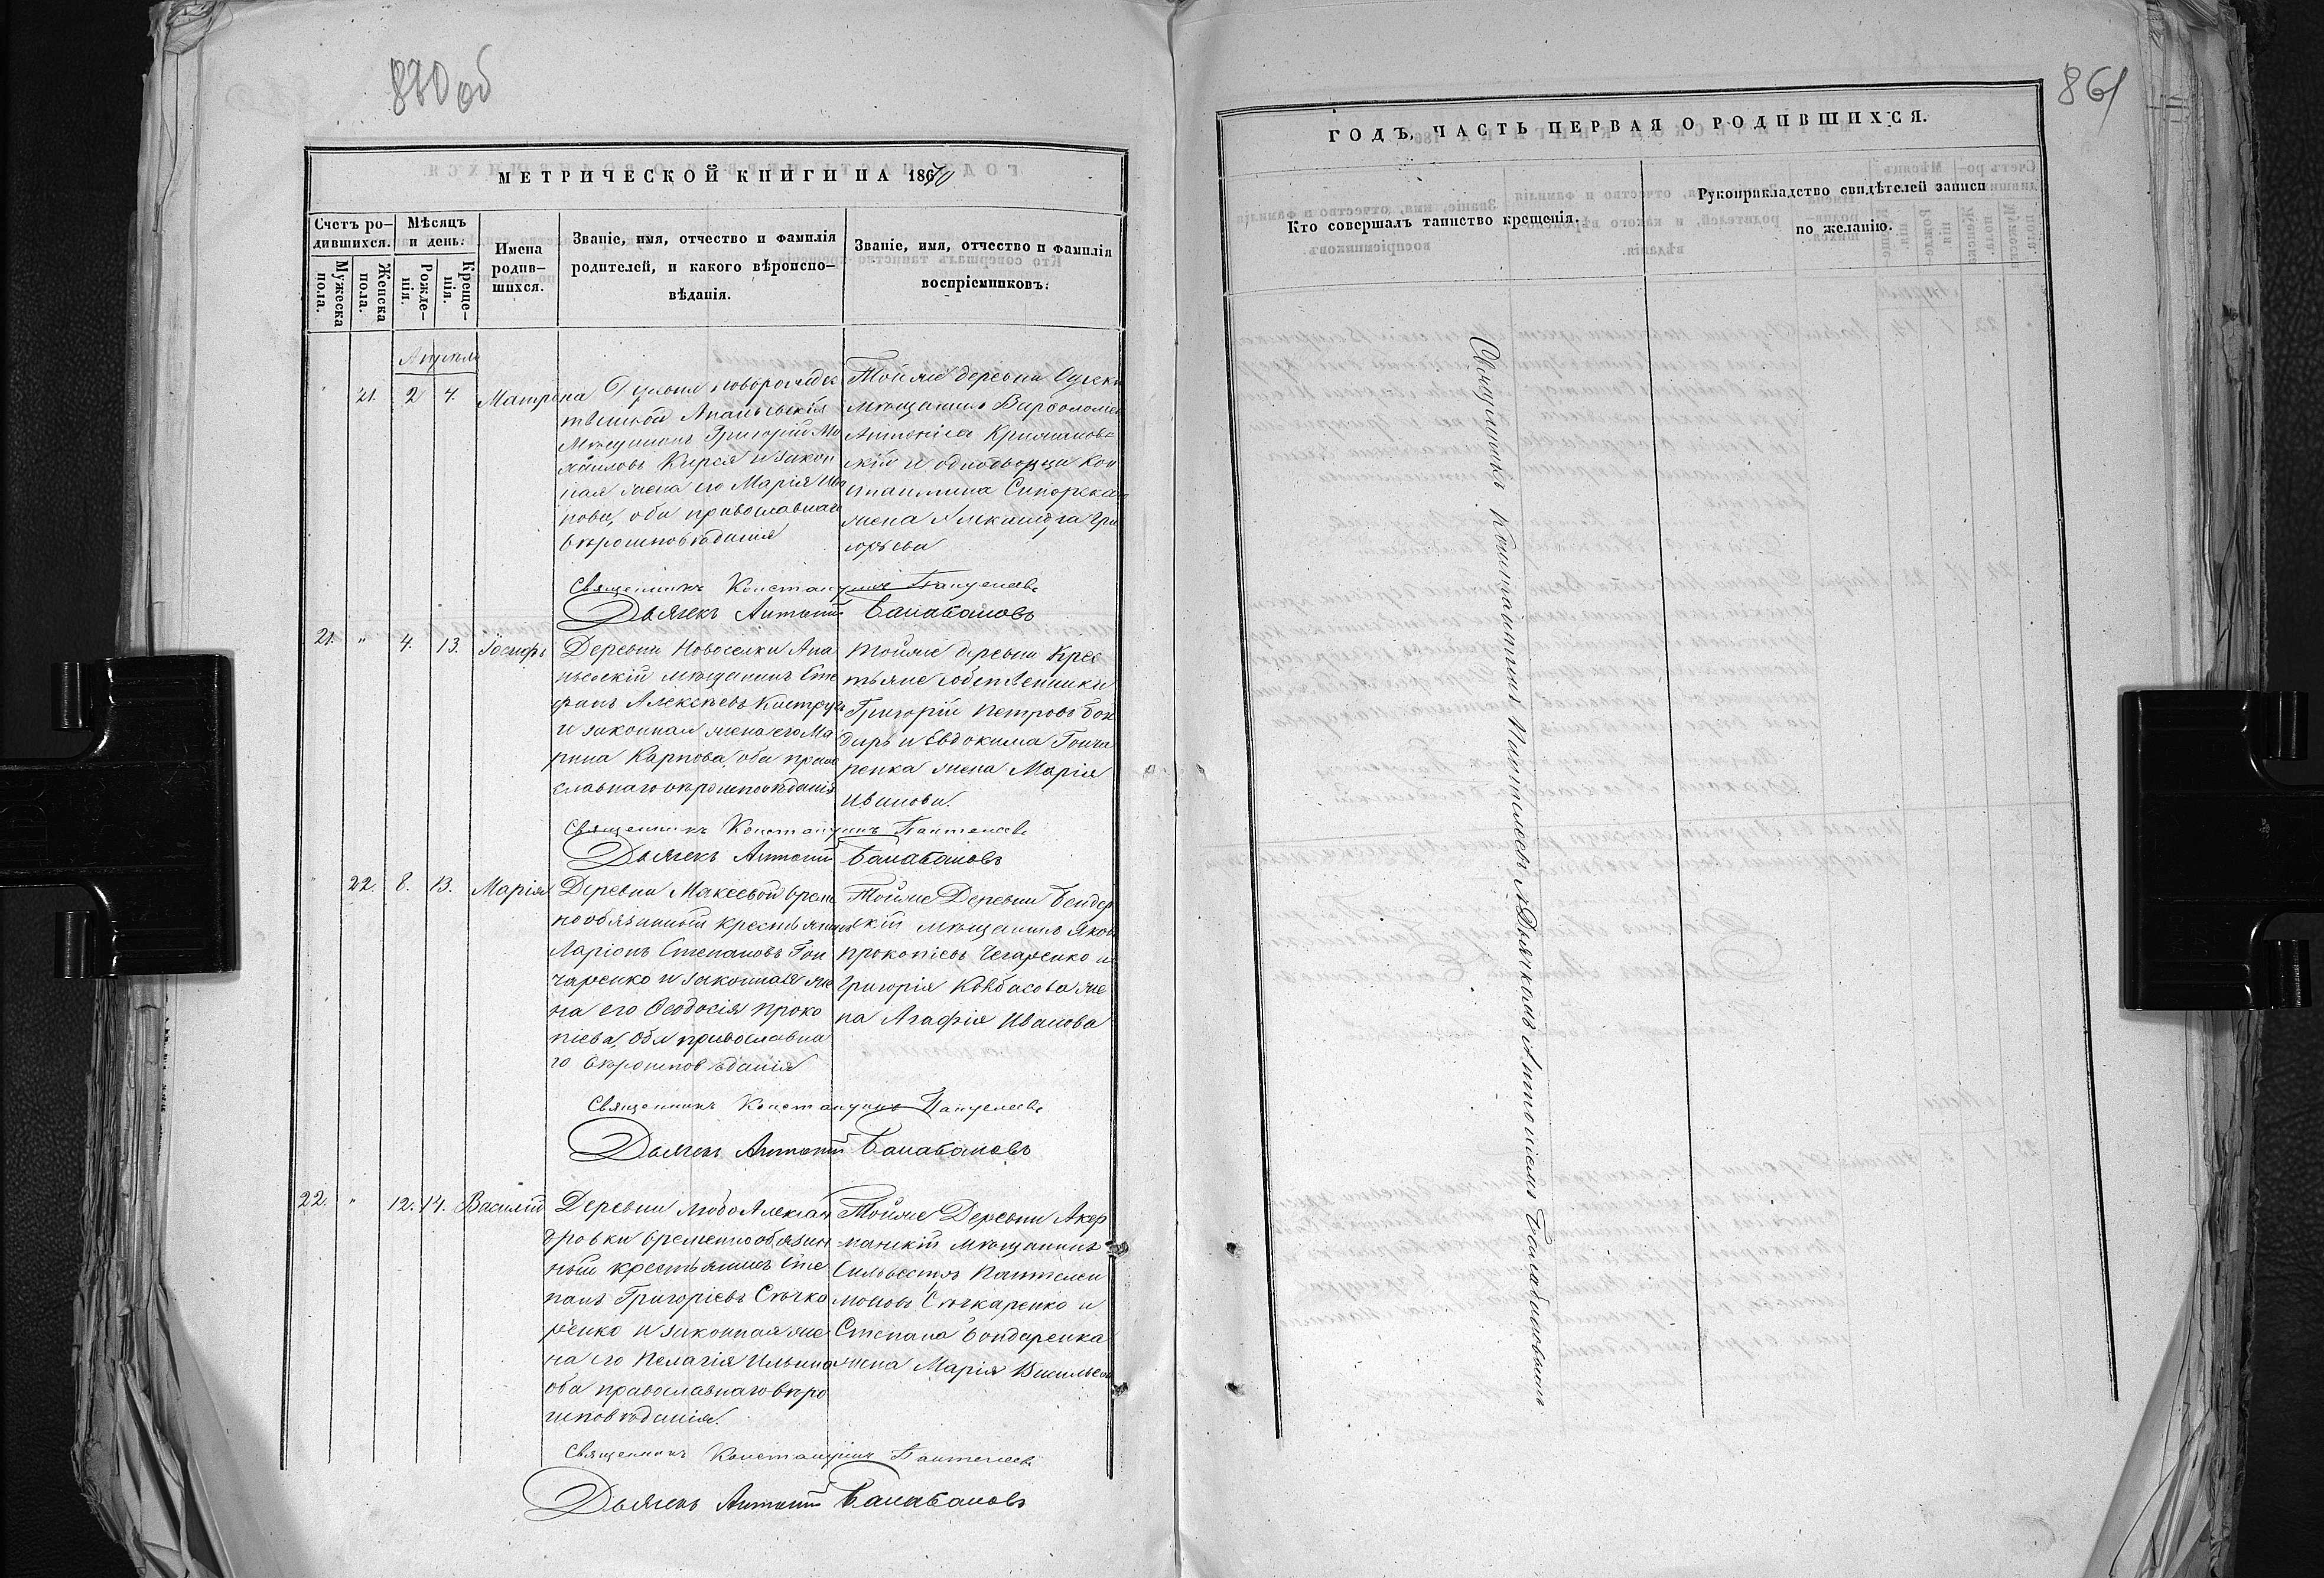 МЕТРИЧЕСКОЙ КНИГИ НА 1870
Счетъ ро-
дившихся.
Мѣсяцъ
и день.
Мужеска
пола.
Женска
пола.
Рожде-
нія.
Креще-
нія.
Имена
родив-
шихся.
Званіе, имя, отчество и фамилія
родителей, и какого вѣроиспо-
вѣданія.
Званіе, имя, отчество и фамилія
воспріемниковъ.
Апрѣля
21. 2 4. Матрена
Ананьевскій
Мѣщанинъ Григорій Ми
хайловъ и закон
ная жена его Марія Ива
нова, оба православнаго
вѣроисповѣданія
Тойже деревни
мѣщанинъ Варфоломей
Антоніевъ
скій и однодворца Кон
стантина
жена Александра Гри
горьева
Священникъ Константинъ Пантелеевъ
Дьячекъ Антоній Балабановъ
21. " 4. 13. Іосифъ
Деревни Новоселки Ана
ньевскій мѣщанинъ Сте
фанъ Алексѣевъ
и законная жена его Ма
рина Карпова, оба право
славнаго вѣроисповѣданія
Тойже деревни Крес
тьяне собственники
Григорій Петровъ Бон
дарь и Евдокима Гонча
ренка жена Марія
Иванова.
Священникъ Константинъ Пантелеевъ
Дьячекъ Антоній Балабановъ
" 22. 8. 13. Марія
Деревни Макеевой време
нообязанный крестьянинъ
Ларіонъ Степановъ Гон
чаренко и законная же
на его Ѳеодосія Проко
піева, оба православна
го вѣроисповѣданія
Тойже Деревни Бендер
скій мѣщанинъ Яковъ
Прокопіевъ Чегаренко и
Григорія Ковбасова же
на Агафія Иванова
Священникъ Константинъ Пантелеевъ
Дьячекъ Антоній Балабановъ
22. " 12. 14. Василій
Деревни Любо Алексан
дровки временнообязан
ный крестьянинъ Сте
панъ Григоріевъ Сѣчка
ренко и законная же
на его Пелагія Ильина
оба православнаго вѣро
исповѣданія.
Тойже Деревни Акер
манскій мѣщанинъ
Сильвестръ Пантелеи
моновъ Сѣчкаренко и
Степана Бондаренка
жена Марія Васильева
Священникъ Константинъ Пантелеевъ
Дьячекъ Антоній Балабановъ
861
ГОДЪ, ЧАСТЬ ПЕРВАЯ О РОДИВШИХСЯ.
Кто совершалъ таинство крещенія.
Рукоприкладство свидѣтелей записи
по желанію.
Священникъ Константинъ Пантелеевъ съ Дьячкомъ Антоніемъ Балабановымъ